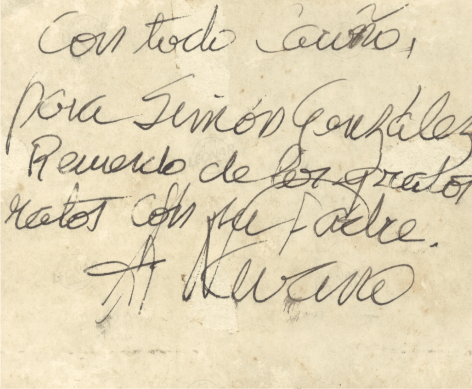 Con todo Cariño,
para Simón González
Recuerdo de los gratos
ratos con su Padre.
A Navarro